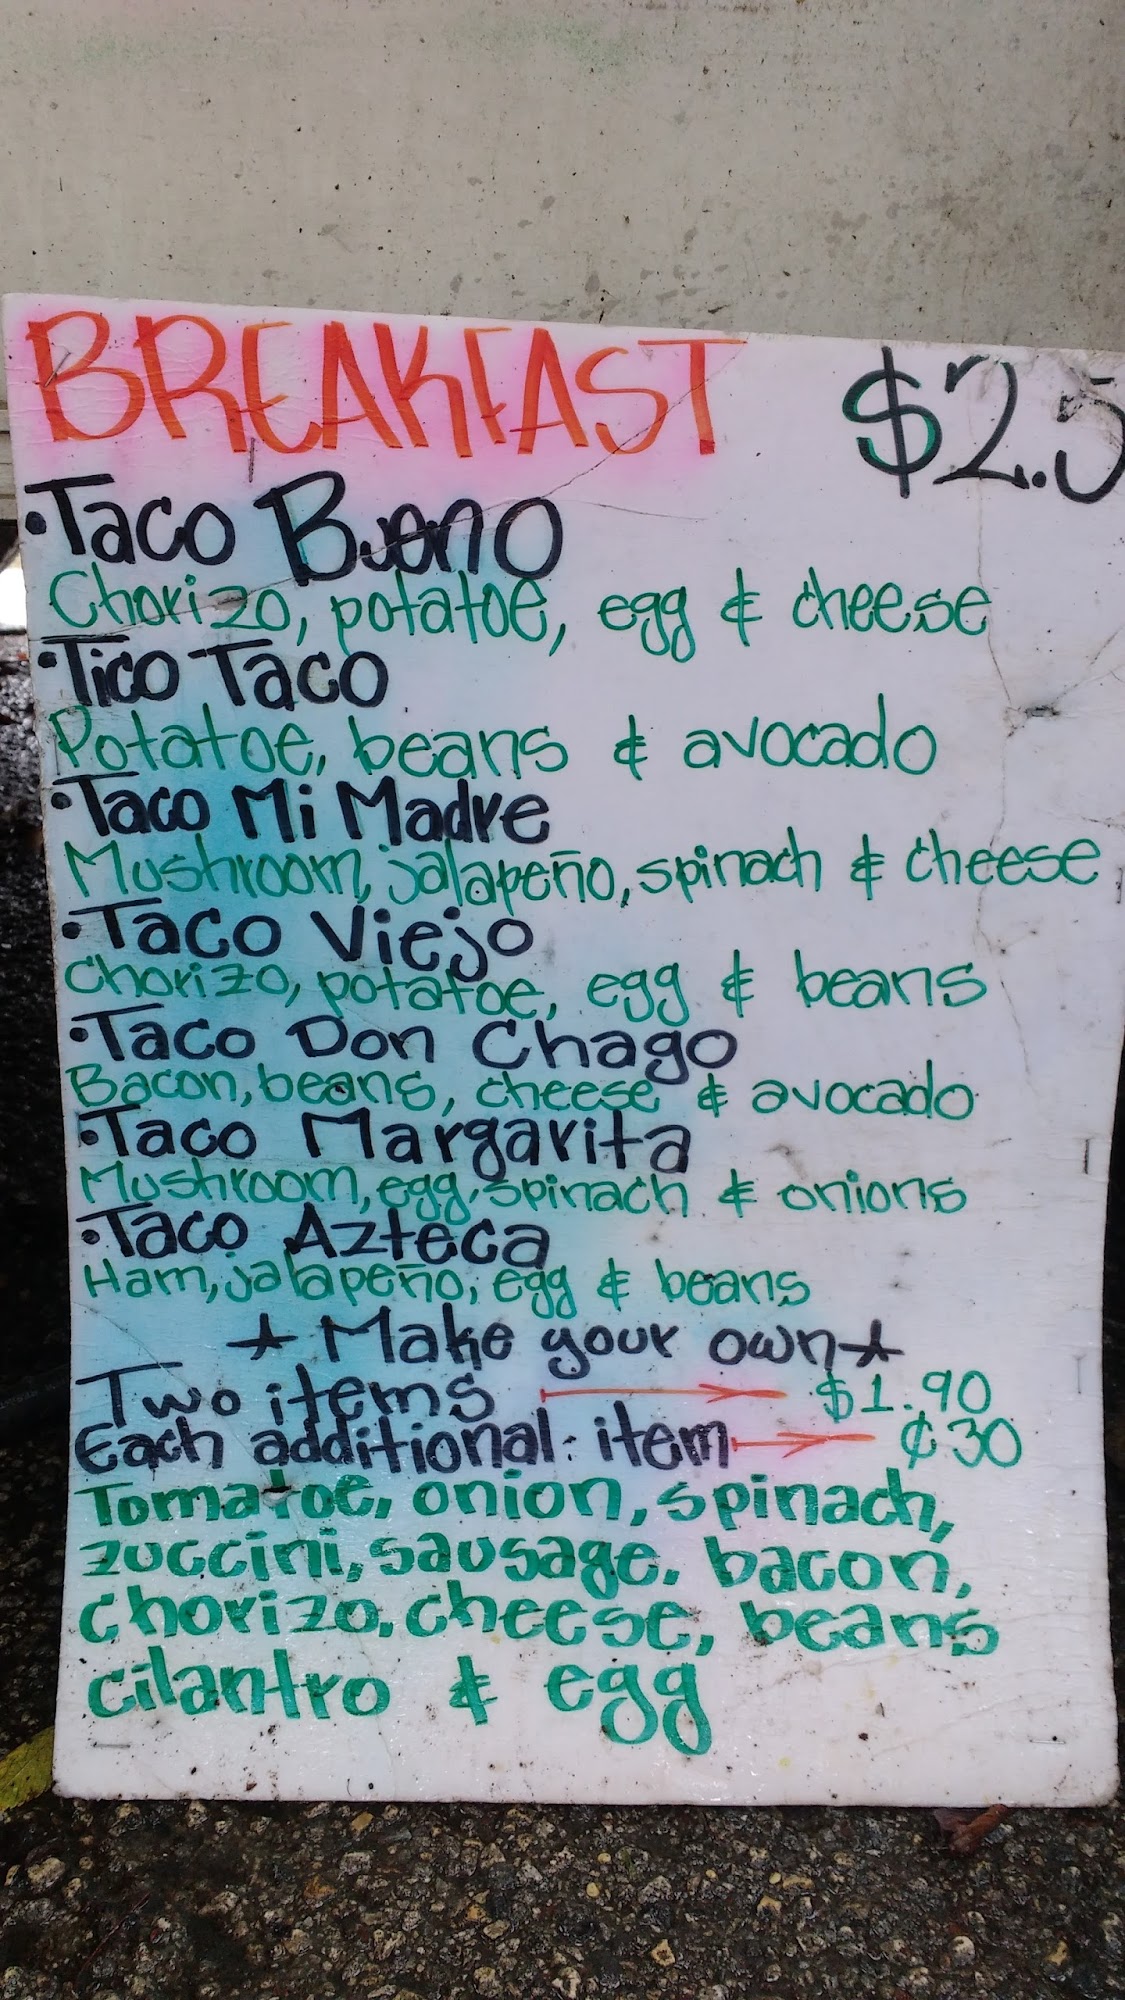 BREAKFAST $2.5
·Taco Bueno
Chorizo, potatoe, egg & cheese
·Tico Taco
Potatoe, beans & avocado
·Taco Mi Madre
Mushroom, jalapeño, spinach & cheese
·Taco Viejo
Chorizo, potatoe, egg & beans
·Taco Don Chago
Bacon, beans, cheese & avocado
·Taco Margarita
Mushroom, egg, spinach & onions
·Taco Azteca
Ham, jalapeño, egg & beans
★ Make your own ★
Two items → $1.90
Each additional item → ¢30
Tomatoe, onion, spinach,
zuccini, sausage, bacon,
chorizo, cheese, beans
cilantro & egg